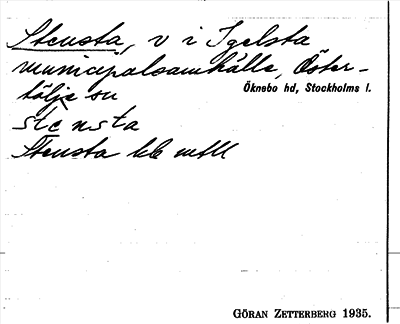 Stensta, v i Igelsta
municipalsamhälle, Öster-
tälje sn Öknebo hd, Stockholms l.
stensta
Stensta
GÖRAN ZETTERBERG 1935.